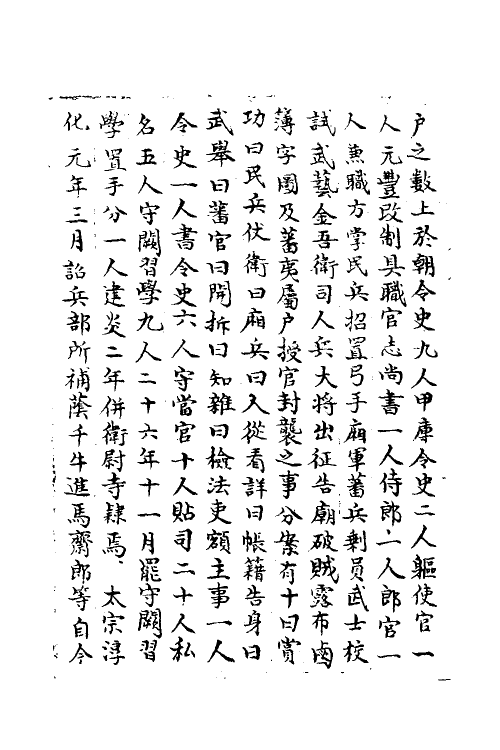 户之數上於朝令史九人甲庫令史二人驅使官一
人元豐改制具職官志尚書一人侍郎一人郎官一
人兼職方掌民兵招置弓手廂軍蕃兵剩員武士校
試武藝金吾衛司人兵大将出征告廟破賊露布鹵
簿字圖及蕃夷屬户授官封襲之事分案有十曰賞
功曰民兵仗衛曰廂兵曰入從看詳曰帳籍告身曰
武舉曰蕃官曰開拆曰知雜曰檢法吏額主事一人
令史一人書令史六人守當官十人貼司二十人私
名五人守闕習學九人二十六年十一月罷守闕習
學置手分一人建炎二年併衛尉寺隸焉 太宗淳
化元年三月詔兵部所補蔭千牛進馬齋郎等自今